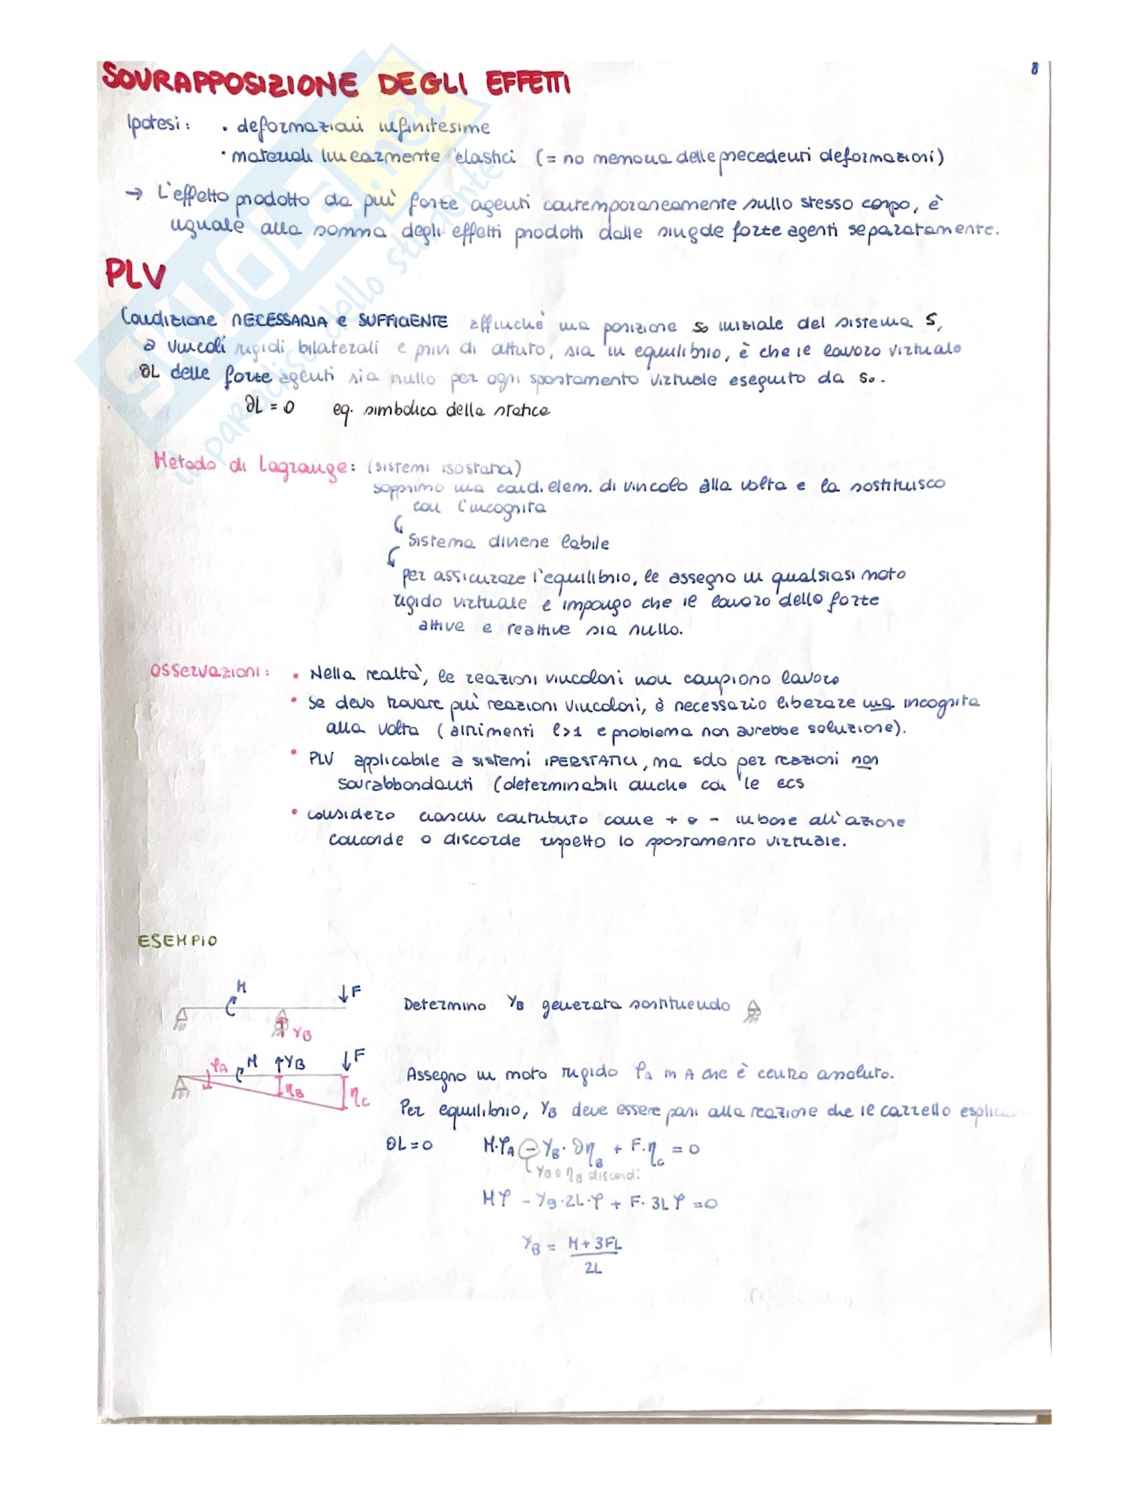 8
SOVRAPPOSIZIONE DEGLI EFFETTI
Ipotesi: • deformazioni infinitesime
• materiali linearmente elastici (= no memoria delle precedenti deformazioni)
→ L'effetto prodotto da più forze agenti contemporaneamente sullo stesso corpo, è
uguale alla somma degli effetti prodotti dalle singole forze agenti separatamente.
PLV
Condizione NECESSARIA e SUFFICIENTE affinché una posizione s₀ iniziale del sistema S,
a vincoli rigidi bilaterali e privi di attrito, sia in equilibrio, è che il lavoro virtuale
∂L delle forze agenti sia nullo per ogni spostamento virtuale eseguito da s₀.
∂L = 0 eq. simbolica della statica
Metodo di Lagrange: (sistemi isostatici)
sopprimo una cond. elem. di vincolo alla volta e la sostituisco
con l'incognita
Sistema diviene labile
per assicurare l'equilibrio, le assegno un qualsiasi moto
rigido virtuale e impongo che il lavoro delle forze
attive e reattive sia nullo.
Osservazioni: • Nella realtà, le reazioni vincolari non compiono lavoro
• Se devo trovare più reazioni vincolari, è necessario liberare una incognita
alla volta (altrimenti l>1 e problema non avrebbe soluzione).
• PLV applicabile a sistemi IPERSTATICI, ma solo per reazioni non
sovrabbondanti (determinabili anche con le ecs
• considero ciascun contributo come + o - in base all'azione
concorde o discorde rispetto lo spostamento virtuale.
ESEMPIO
M F
Determino Y_B generata sostituendo
Y_B
φ_A M Y_B F
η_B η_C
Assegno un moto rigido φ_A in A che è centro assoluto.
Per equilibrio, Y_B deve essere pari alla reazione che il carrello esplic
∂L = 0 M·φ_A - Y_B·∂η_B + F·η_C = 0
Y_B e η_B discordi
Mφ - Y_B·2L·φ + F·3Lφ = 0
Y_B = M + 3FL / 2L
SKUOLA.net
il paradiso dello studente